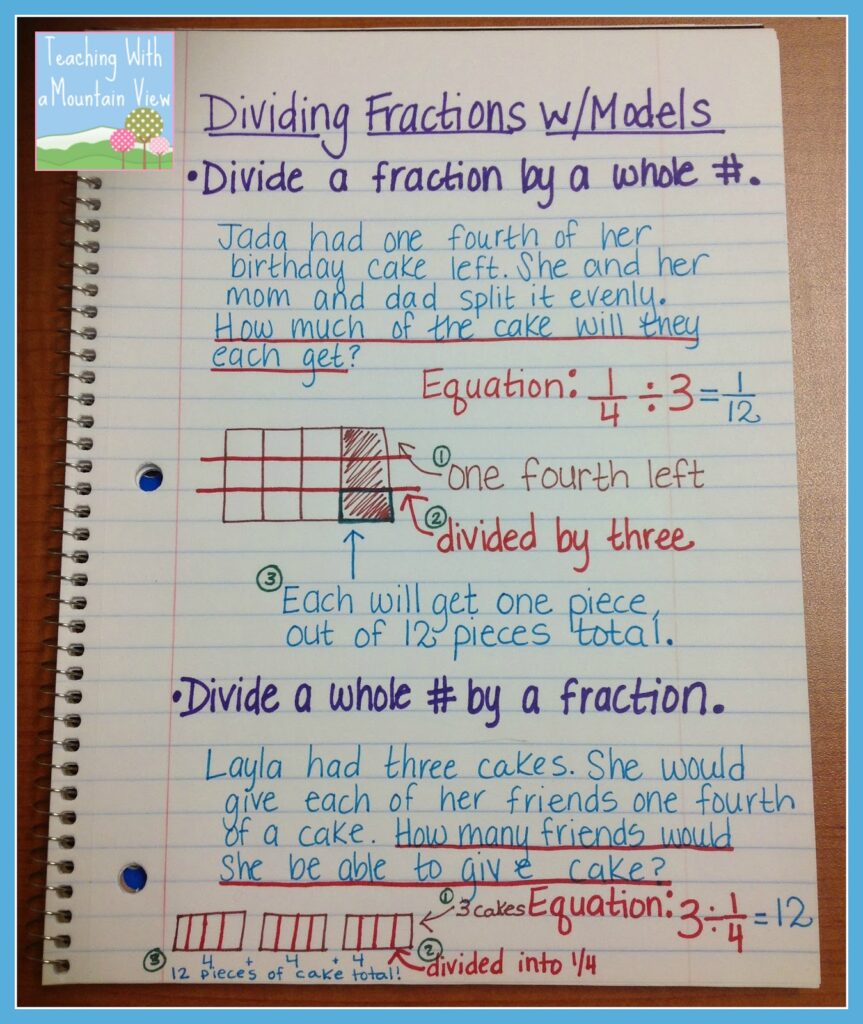 Teaching With
a Mountain View
Dividing Fractions w/Models
•Divide a fraction by a whole #.
Jada had one fourth of her
birthday cake left. She and her
mom and dad split it evenly.
How much of the cake will they
each get?
Equation: 1/4 ÷ 3 = 1/12
① one fourth left
② divided by three
③ Each will get one piece,
out of 12 pieces total.
•Divide a whole # by a fraction.
Layla had three cakes. She would
give each of her friends one fourth
of a cake. How many friends would
she be able to give cake?
① 3 cakes
Equation: 3 ÷ 1/4 = 12
② divided into 1/4
③ 4 + 4 + 4
12 pieces of cake total!